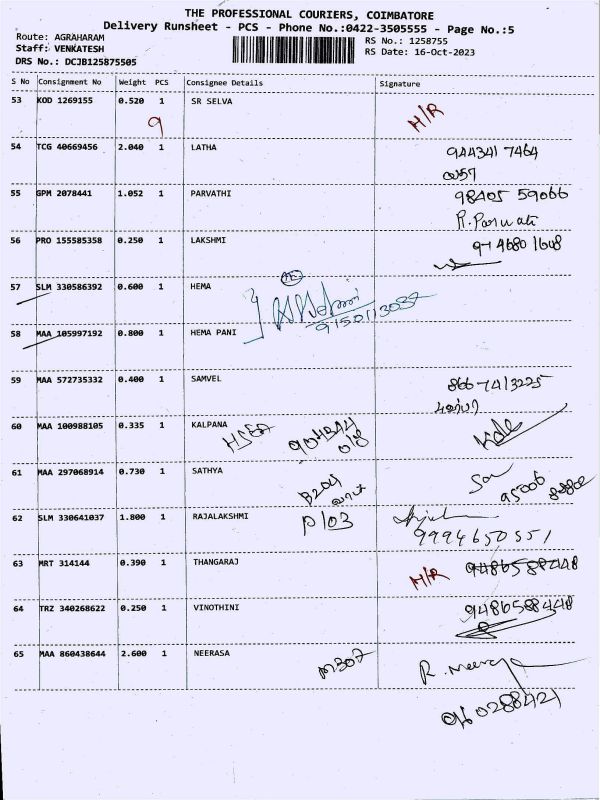 THE PROFESSIONAL COURIERS, COIMBATORE
Delivery Runsheet - PCS - Phone No.:0422-3505555 - Page No.:5
Route: AGRAHARAM
Staff: VENKATESH
DRS No.: DCJB125875505
RS No.: 1258755
RS Date: 16-Oct-2023
S No Consignment No Weight PCS Consignee Details Signature
53 KOD 1269155 0.520 1 SR SELVA H/R
9
54 TCG 40669456 2.040 1 LATHA 944341 7464
55 GPM 2078441 1.052 1 PARVATHI 98405 59066
R. Parvati
56 PRO 155585358 0.250 1 LAKSHMI
57 SLM 330586392 0.600 1 HEMA
9150113037
58 MAA 105997192 0.800 1 HEMA PANI
59 MAA 572735332 0.400 1 SAMVEL 866 7413225
60 MAA 100988105 0.335 1 KALPANA
61 MAA 297068914 0.730 1 SATHYA
B204
62 SLM 330641037 1.800 1 RAJALAKSHMI P103
9994650551
63 MRT 314144 0.390 1 THANGARAJ H/R 9486588448
64 TRZ 340268622 0.250 1 VINOTHINI 9486588448
65 MAA 860438644 2.600 1 NEERASA M307